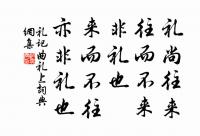 礼尚往来
往而不来
非礼也
来而不往
亦非礼也
礼记曲礼上词典
网集